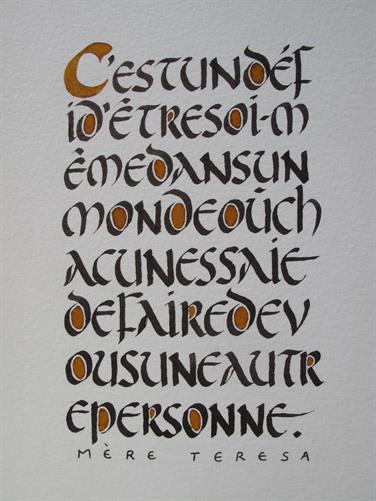 C'ESTUNDÉF
ID'ÊTRESOI-M
ÊMEDANSUN
MONDEOÙCH
ACUNESSAIE
DEFAIREDEV
OUSUNEAUTR
EPERSONNE.
MÈRE TERESA